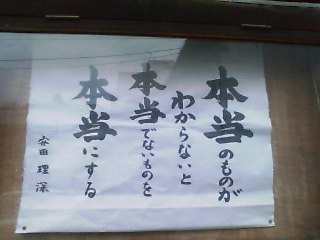 本当のものが
わからないと
本当でないものを
本当にする
安田 理深